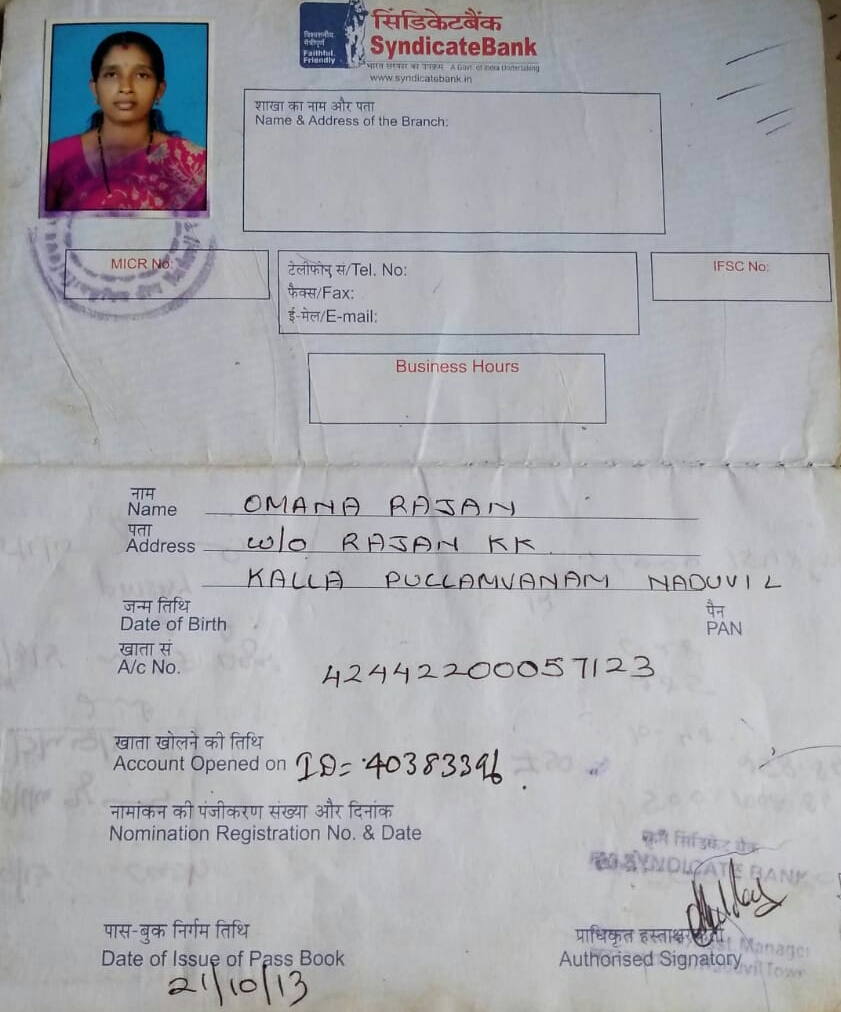 सिंडिकेटबैंक
SyndicateBank
विश्वसनीय
मैत्रीपूर्ण
Faithful.
Friendly
भारत सरकार का उपक्रम A Govt. of India Undertaking
www.syndicatebank.in
शाखा का नाम और पता
Name & Address of the Branch:
MICR No:
टेलीफोन् सं/Tel. No:
फैक्स/Fax:
ई-मेल/E-mail:
IFSC No:
Business Hours
नाम
Name OMANA RAJAN
पता
Address W/O RAJAN KK
KALLA PULLAMVANAM NADUVIL
जन्म तिथि
Date of Birth
पैन
PAN
खाता सं
A/c No. 42442200057123
खाता खोलने की तिथि
Account Opened on ID= 40383396.
नामांकन की पंजीकरण संख्या और दिनांक
Nomination Registration No. & Date
कृते सिंडिकेट बैंक
SYNDICATE BANK
पास-बुक निर्गम तिथि
Date of Issue of Pass Book
21/10/13
प्राधिकृत हस्ताक्षर
Authorised Signatory
Manager
Town